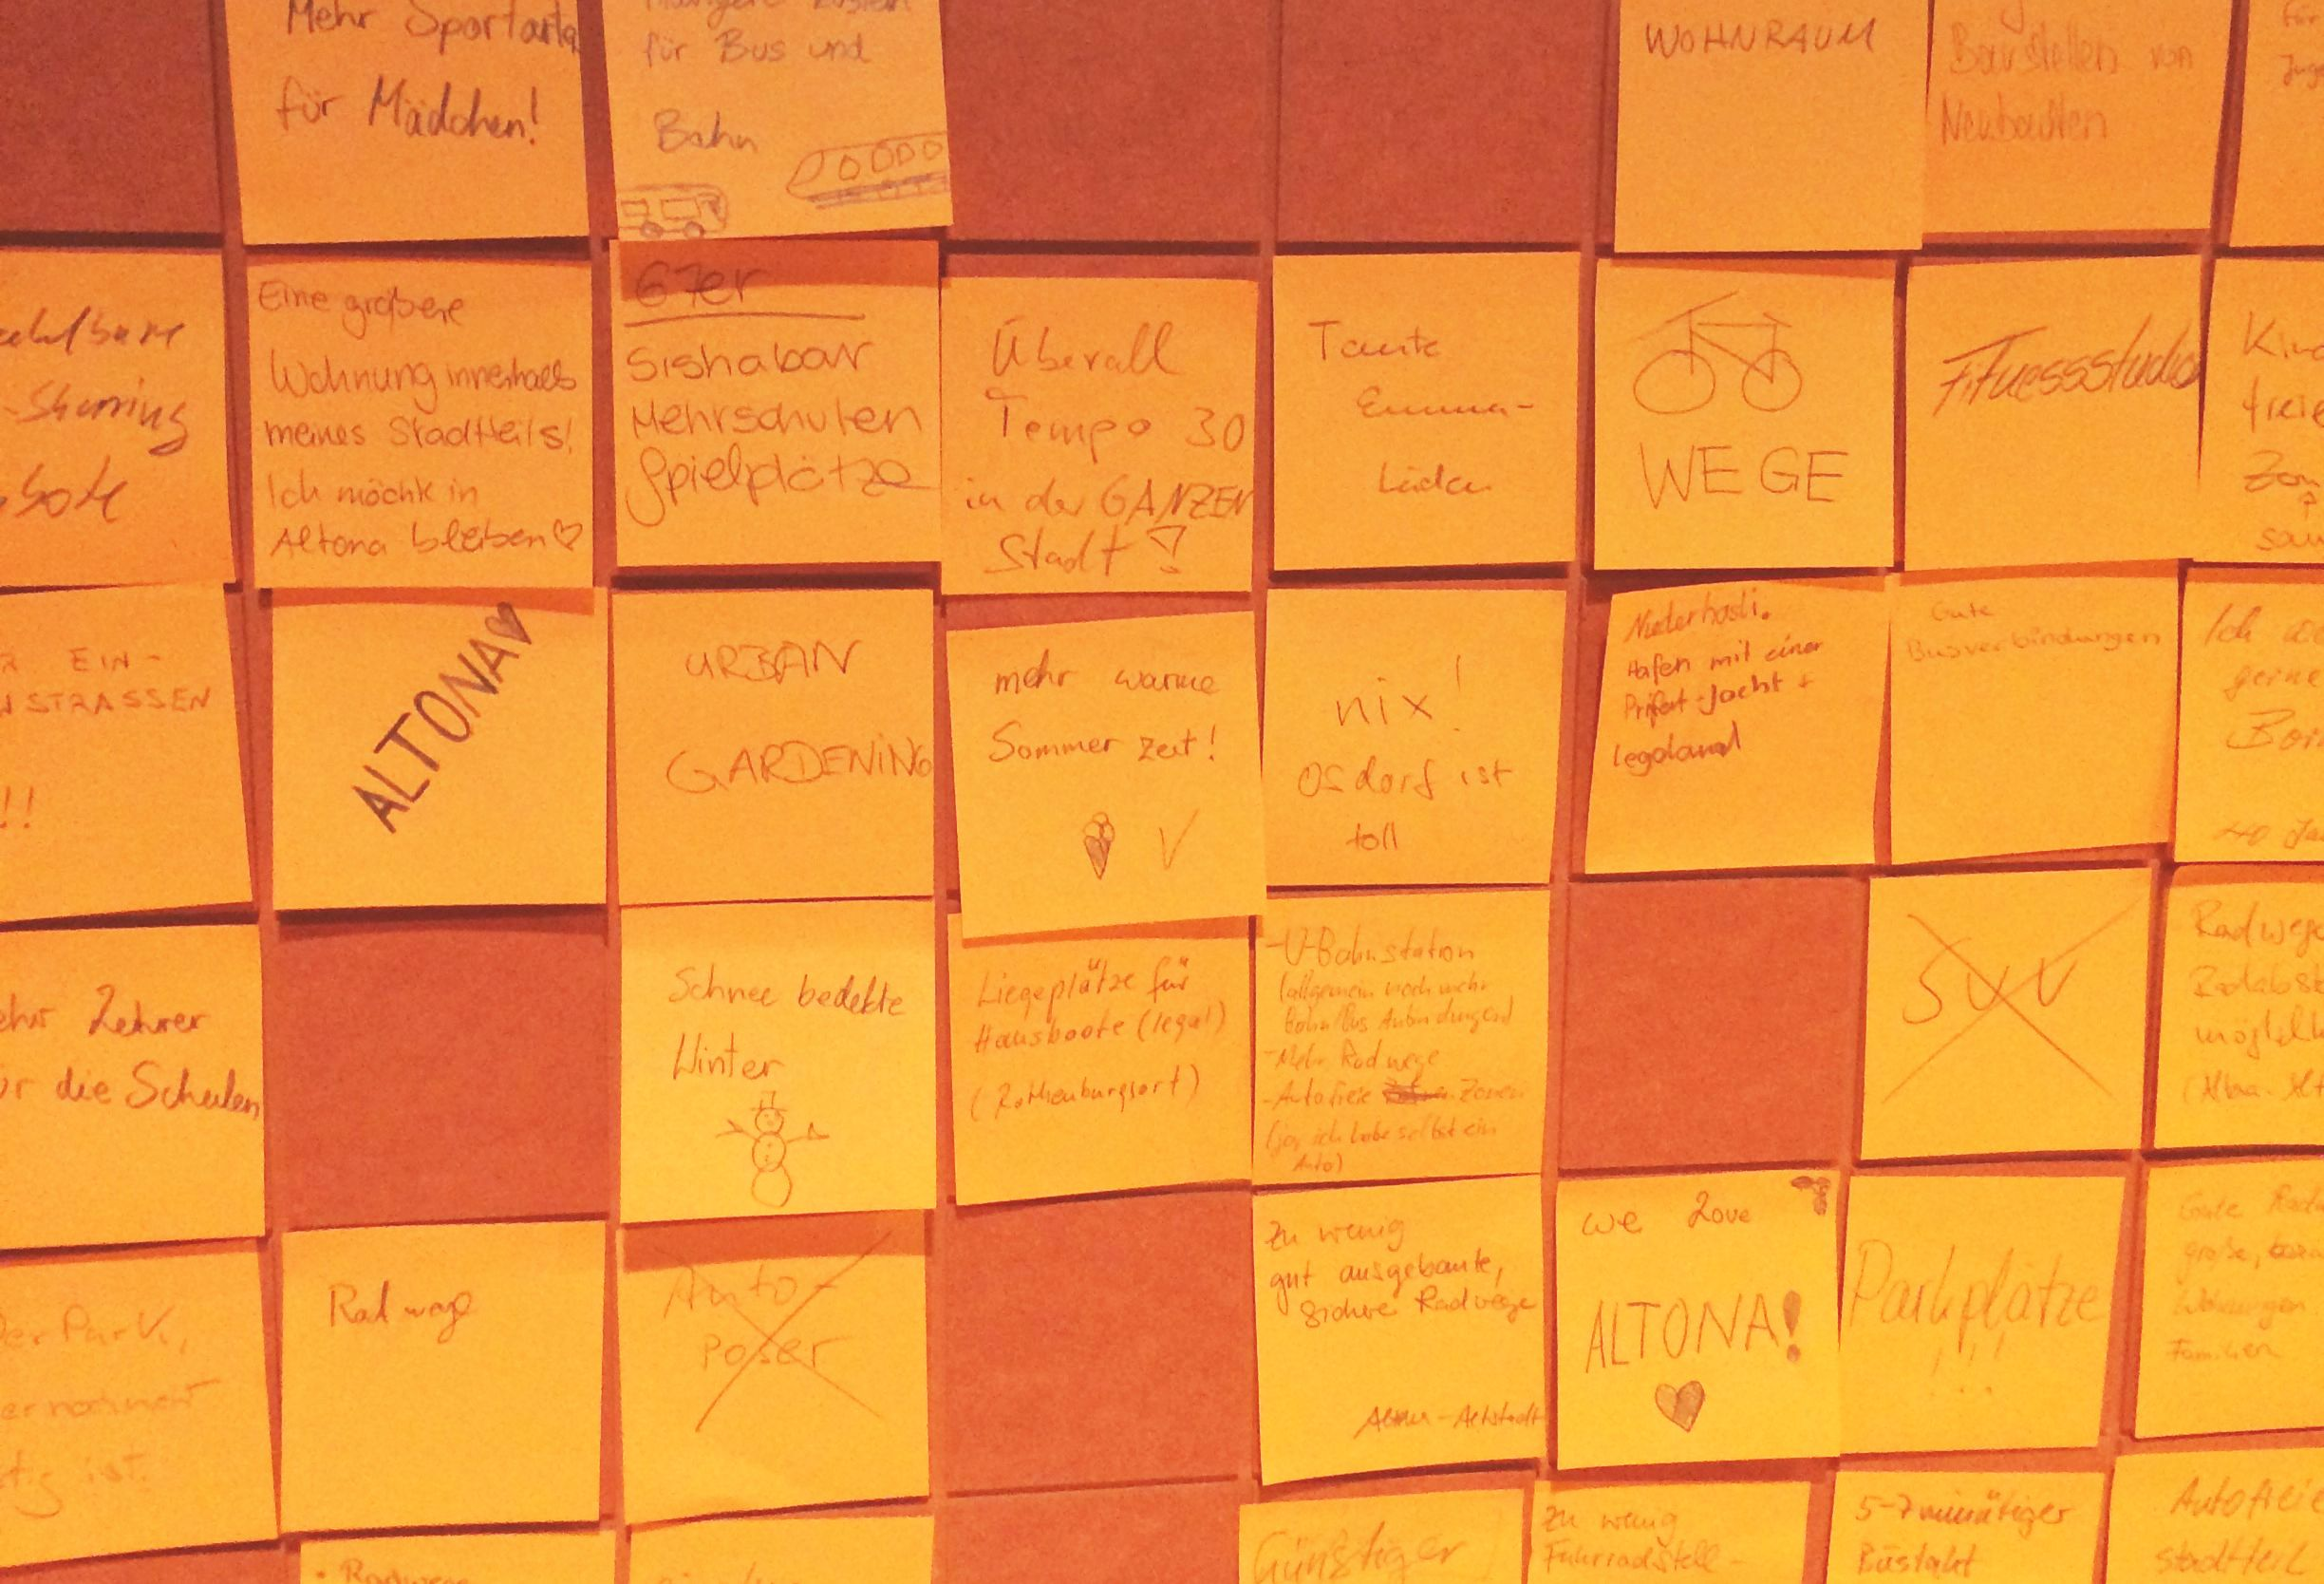 Mehr Sportarten
für Mädchen!
für Bus und
Bahn
WOHNRAUM
Baustellen von
Neubauten
-Sharing
Eine größere
Wohnung innerhalb
meines Stadtteils!
Ich möchte in
Altona bleiben♡
67er
Sishabar
Mehrschulen
Spielplätze
Überall
Tempo 30
in der GANZEN
Stadt!
Tante
Emma-
Läden
WEGE
Fitnessstudio
EIN-
STRASSEN
!!
ALTONA♥
URBAN
GARDENING
mehr warme
Sommer zeit!
nix!
Osdorf ist
toll
Niederhasli.
Hafen mit einer
Prifat-Jacht +
legoland
Gute
Busverbindungen
Ich
gerne
Lehrer
die Schulen
Schnee bedekte
Winter
Liegeplätze für
Hausboote (legal)
(Rothenburgsort)
-U-Bahnstation
(allgemein noch mehr
Bahn/Bus Anbindungen)
-Mehr Radwege
-Autofreie Zonen
(ja, ich habe selbst ein
Auto)
SUV
Radwege
Der Park,
ist.
Radweg
Auto-
poser
Zu wenig
gut ausgebaute,
sichere Radwege
Altona-Altstadt
We Love
ALTONA!
Parkplätze
!!!
Gute
große,
Wohnungen
Familien
• Radwege
Günstiger
Zu wenig
Fahrradstell-
5-7 minütiger
Bustakt
Stadtteil